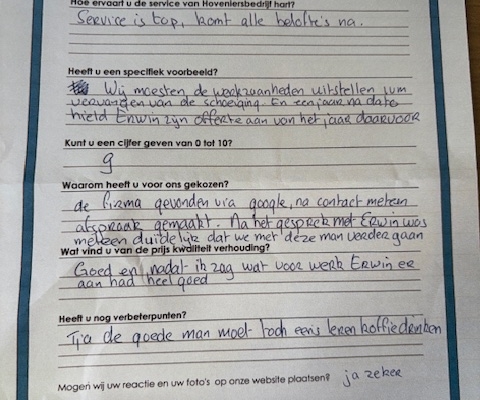 Hoe ervaart u de service van Hoveniersbedrijf hart?
Service is top, komt alle belofte's na.
Heeft u een specifiek voorbeeld?
Wij moesten de werkzaanheden uitstellen ivm
vervangen van de schoeiing. En een jaar na dato
hield Erwin zijn offerte aan van het jaar daarvoor
Kunt u een cijfer geven van 0 tot 10?
9
Waarom heeft u voor ons gekozen?
de firma gevonden via google, na contact meteen
afspraak gemaakt. Na het gesprek met Erwin was
meteen duidelijk dat we met deze man verder gaan
Wat vind u van de prijs kwaliteit verhouding?
Goed en nadat ik zag wat voor werk Erwin er
aan had heel goed
Heeft u nog verbeterpunten?
Tja de goede man moet toch eens leren koffiedrinken
Mogen wij uw reactie en uw foto's op onze website plaatsen? ja zeker